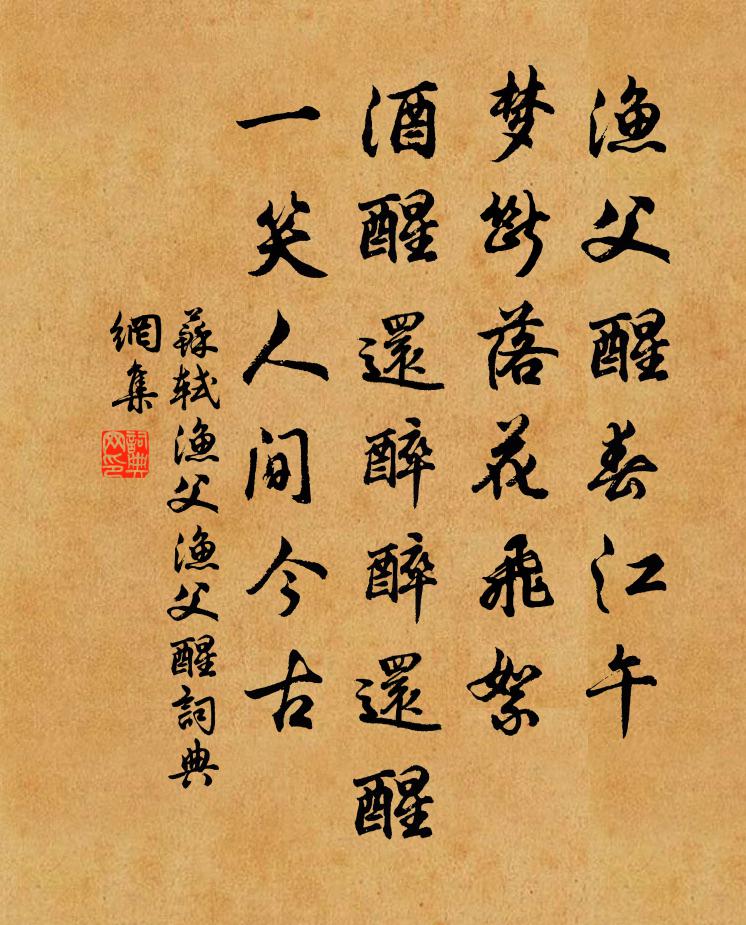 渔父醒春江午
梦断落花飞絮
酒醒還醉醉还醒
一笑人间今古
蘇轼渔父渔父醒詞典
網集
詞典
网印